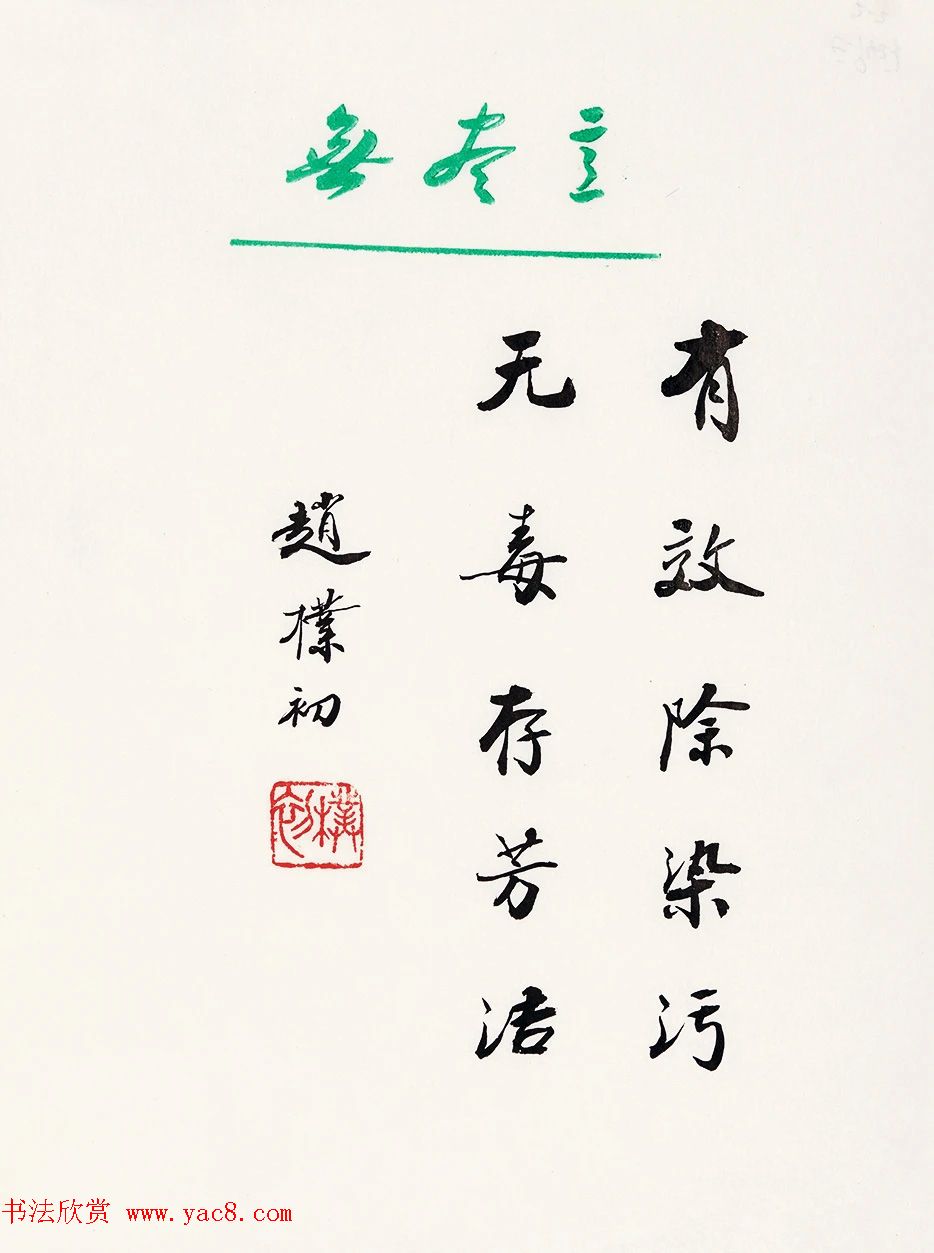 無尽意
有效除染污
无毒存芳洁
趙樸初
樸初
书法欣赏 www.yac8.com